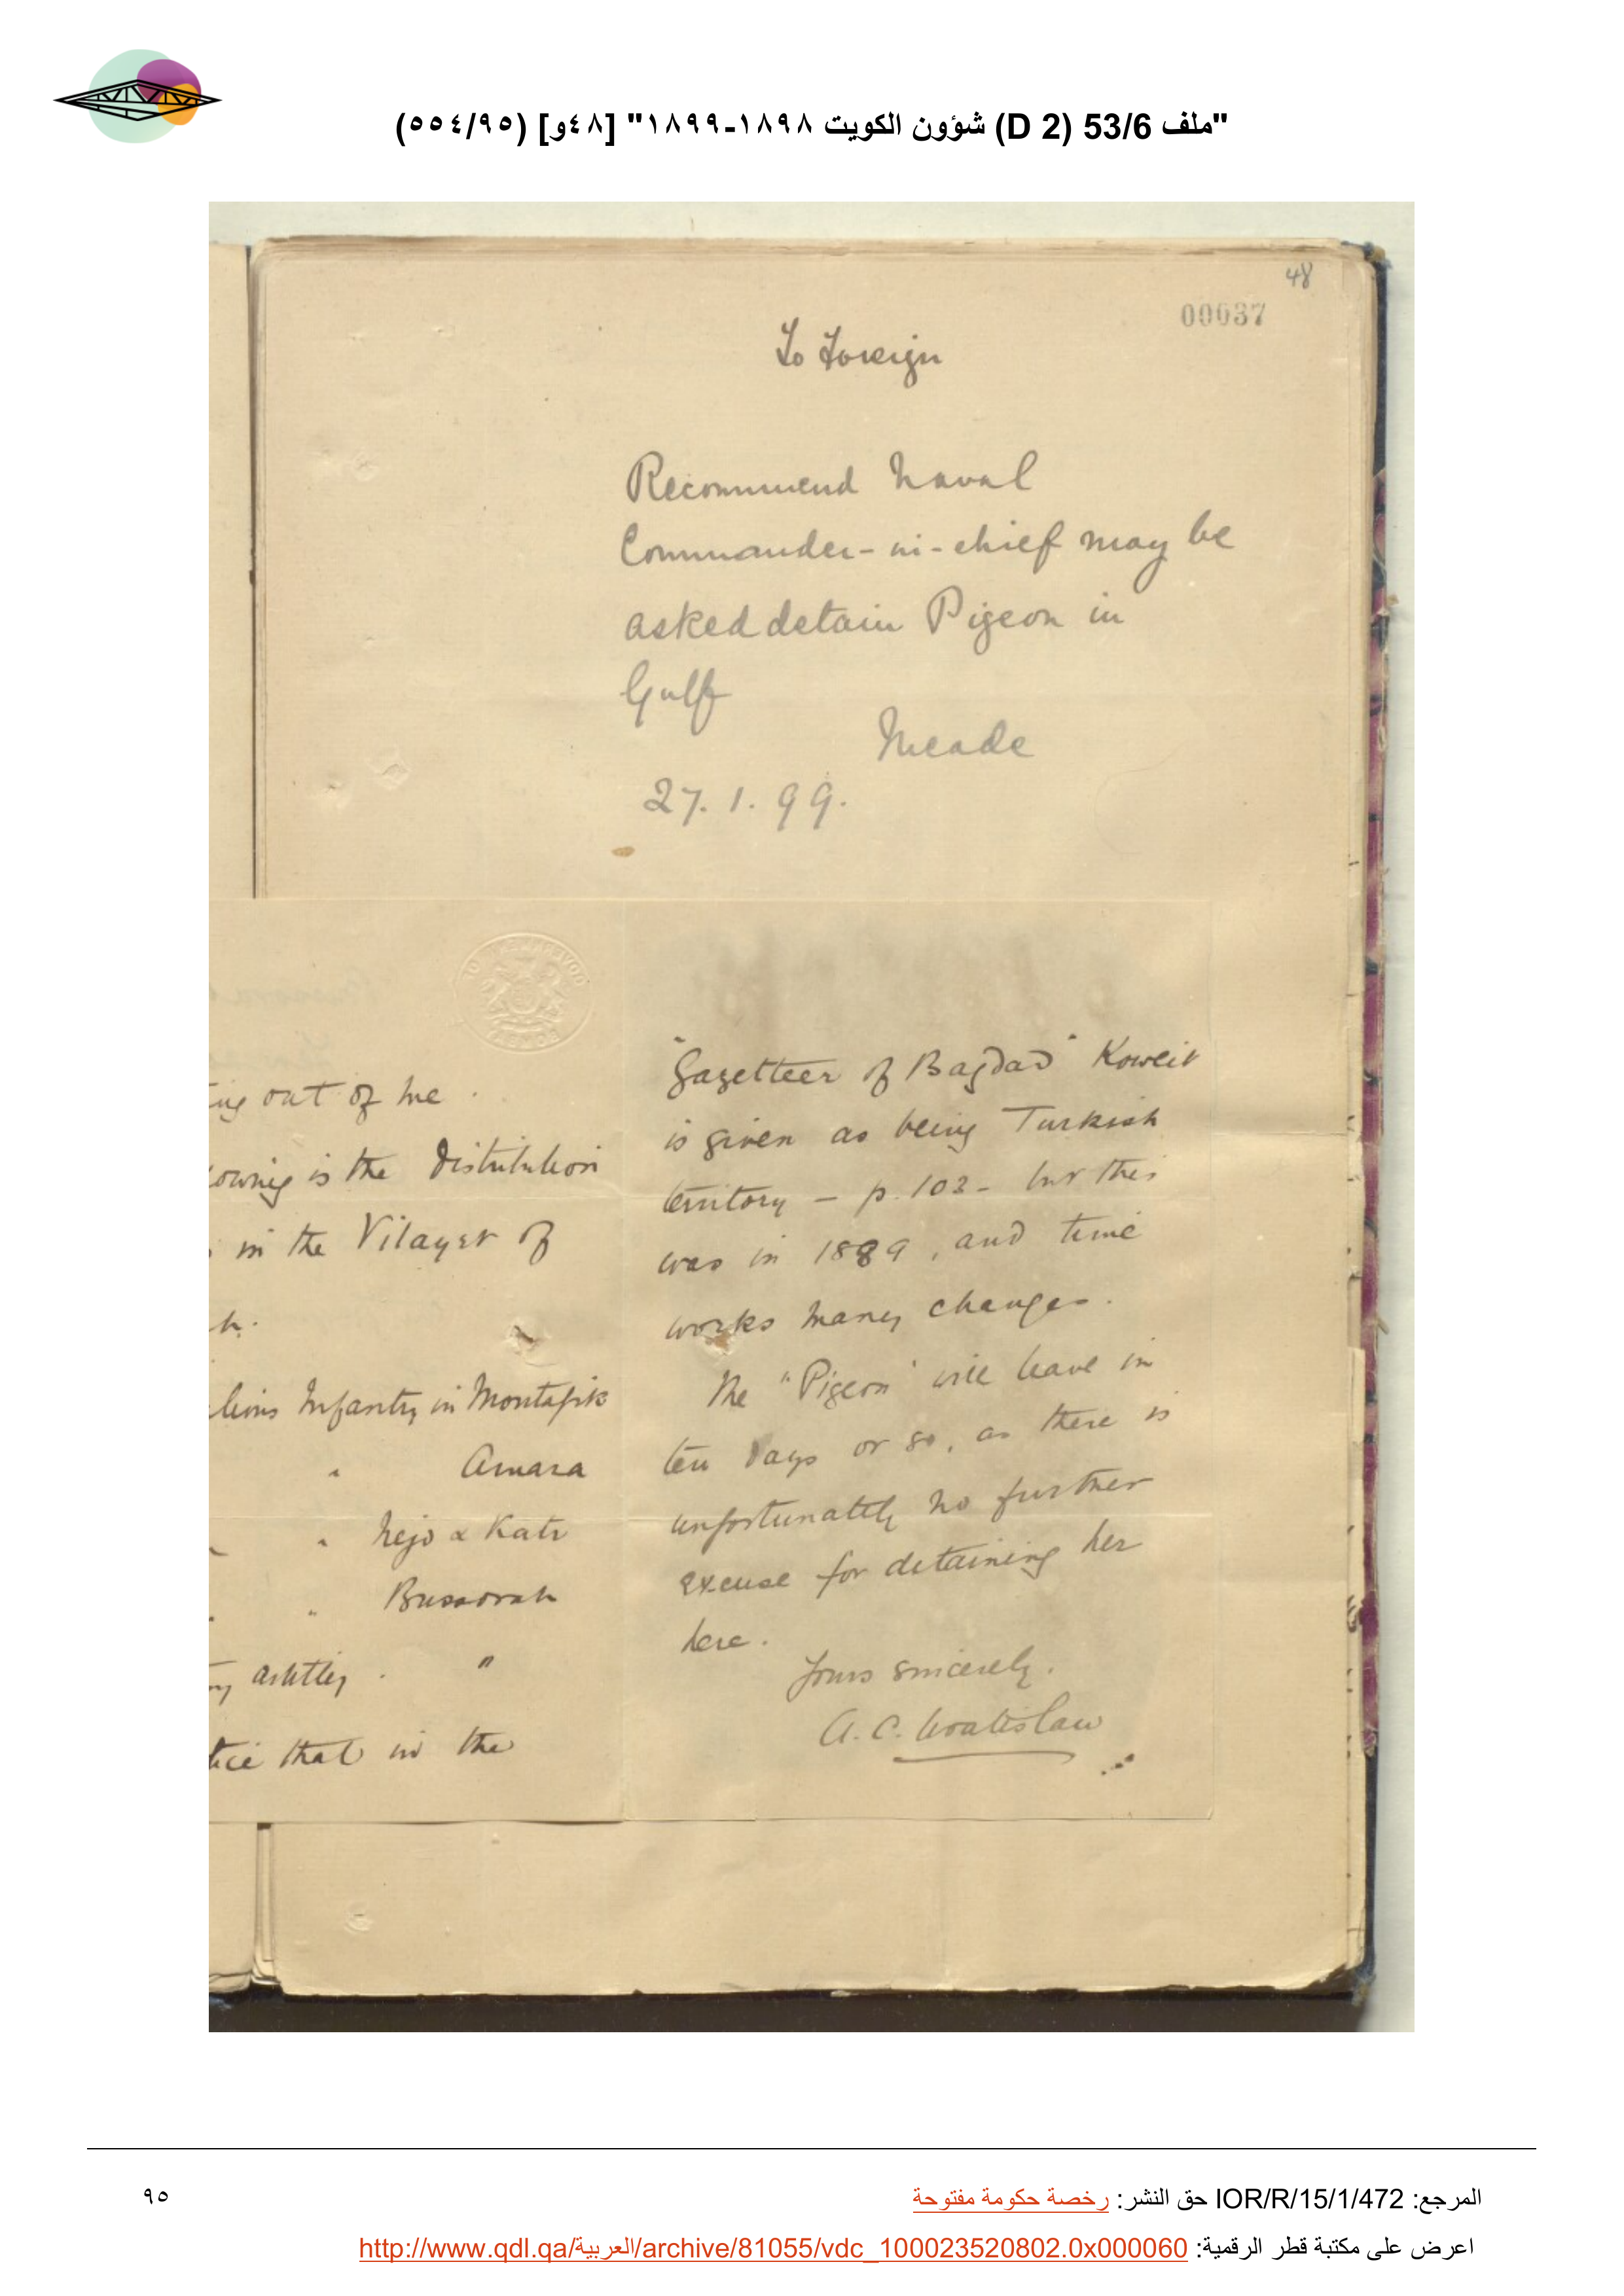 "ملف 53/6 (D 2) شؤون الكويت ١٨٩٨-١٨٩٩" [٤٨و] (٥٥٤/٩٥)
48
00037
To Foreign
Recommend Naval
Commander-in-chief may be
asked detain Pigeon in
Gulf
Meade
27.1.99.
ing out of me.
owing is the distribution
in the Vilayet of
h.
lions Infantry in Montafik
" Amara
" Nejd & Katr
" Bussorah
artillery. "
tice that in the
"Gazetteer of Bagdad" Koweit
is given as being Turkish
territory - p. 103 - but this
was in 1889, and time
works many changes.
The "Pigeon" will leave in
ten days or so, as there is
unfortunately no further
excuse for detaining her
here.
Yours sincerely.
A. C. Wratislaw
المرجع: IOR/R/15/1/472 حق النشر: رخصة حكومة مفتوحة
٩٥
اعرض على مكتبة قطر الرقمية: http://www.qdl.qa/العربية/archive/81055/vdc_100023520802.0x000060